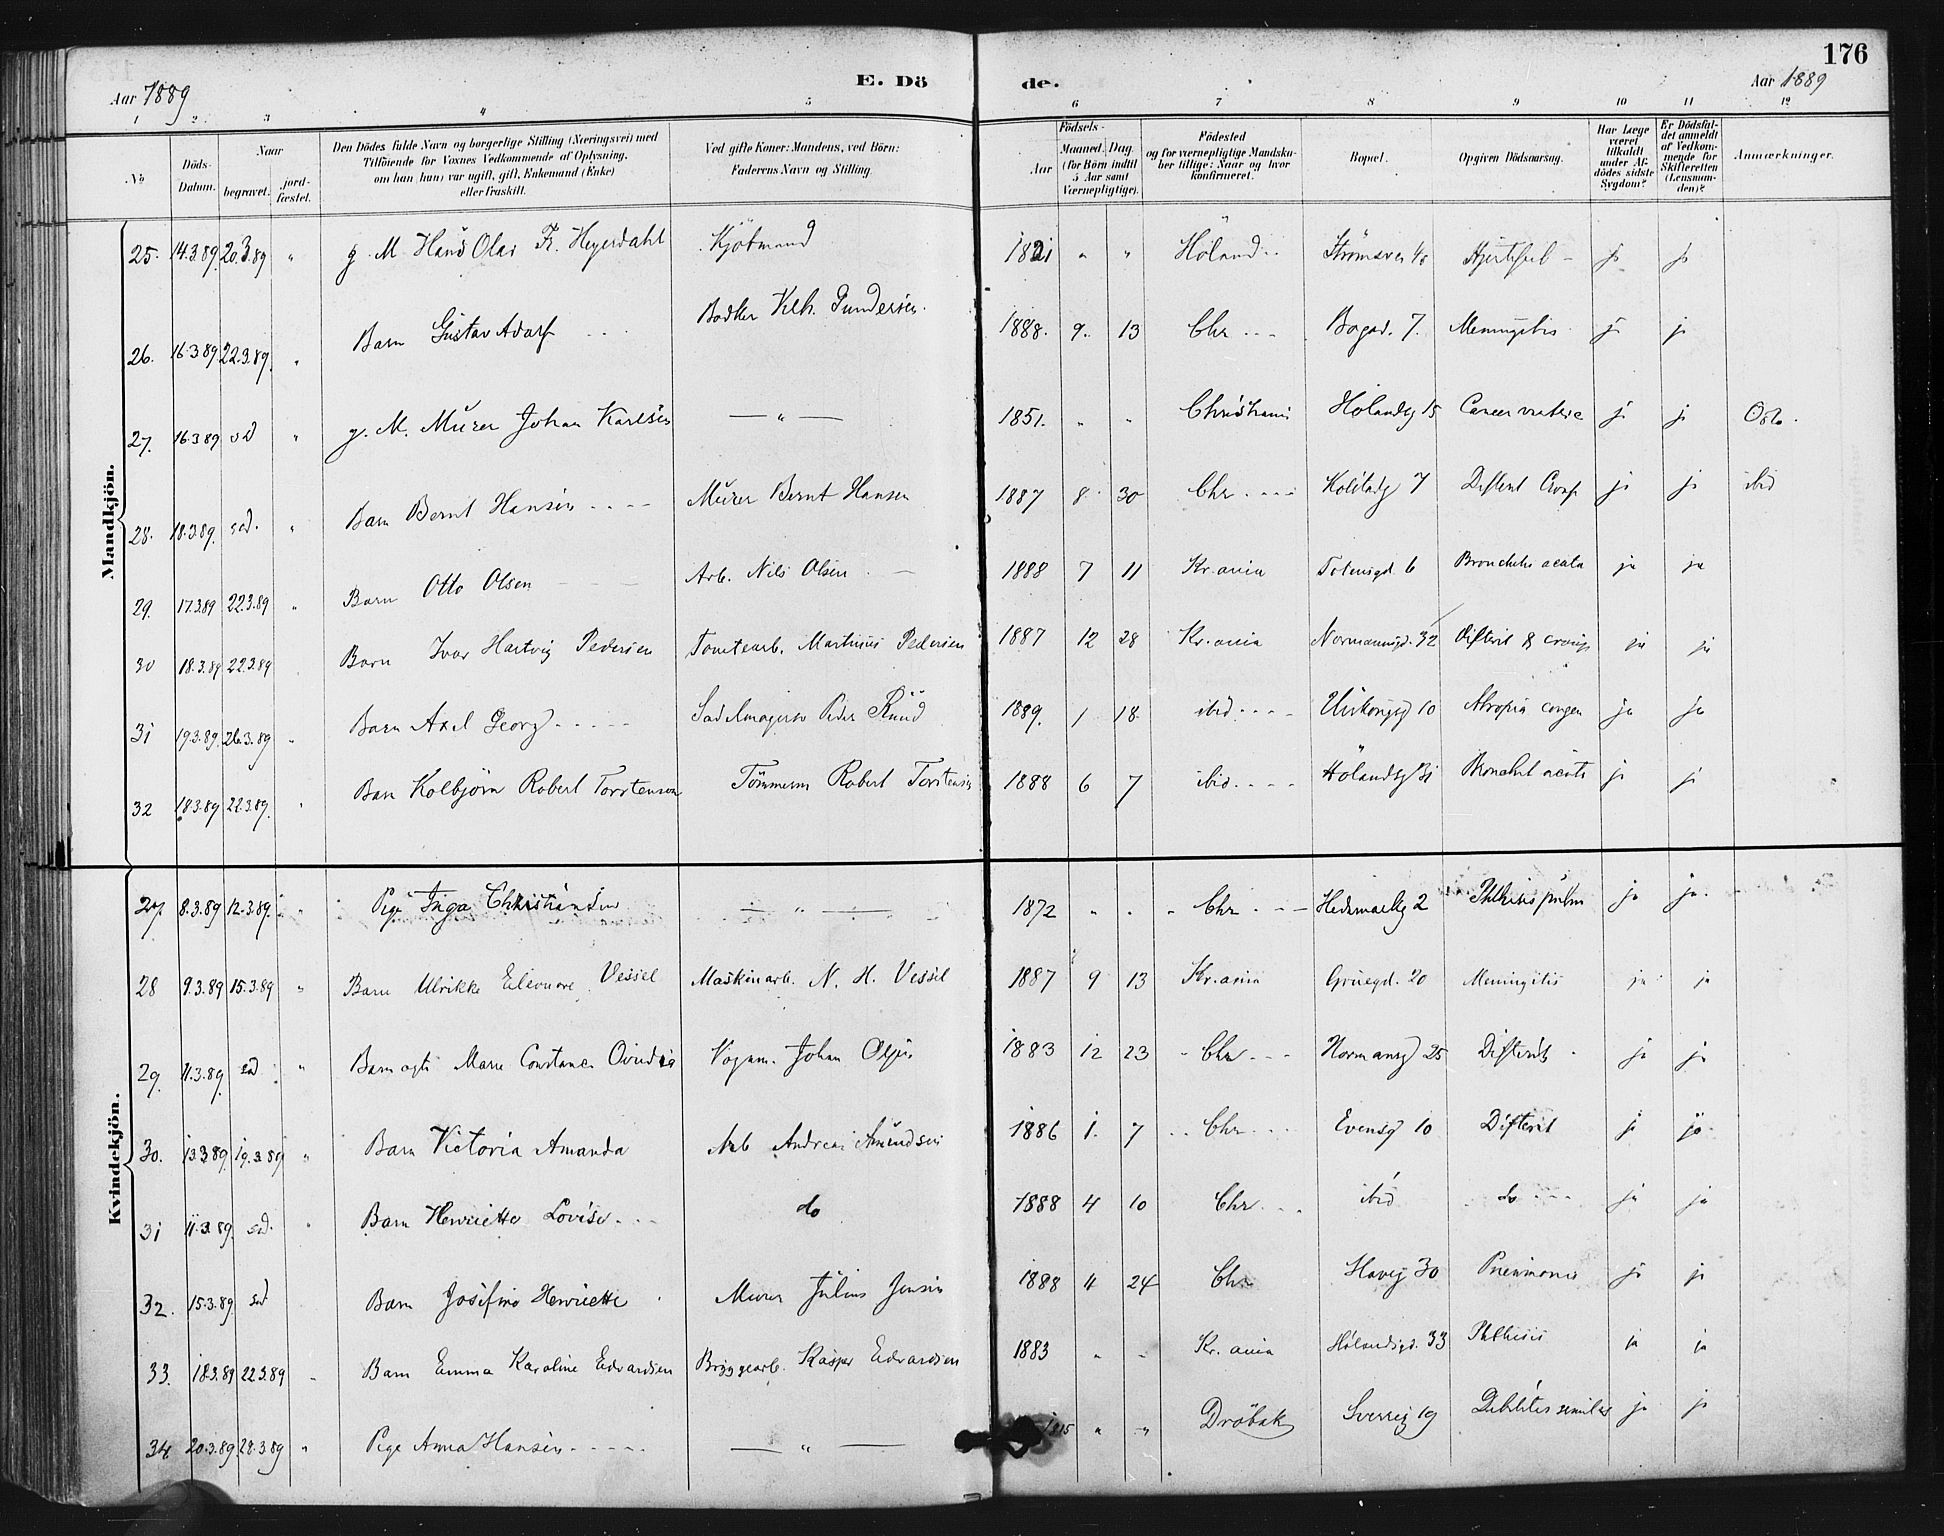 176
Aar 1889
E. Dö
de.
Aar 1889
1 2 3 4 5 6 7 8 9 10 11 12
№
Döds-
Datum.
Naar
begravet.
jord-
fæstet.
Den Dödes fulde Navn og borgerlige Stilling (Næringsvei) med
Tilföiende for Voxnes Vedkommende af Oplysning,
om han (hun) var ugift, gift, Enkemand (Enke)
eller fraskilt.
Ved gifte Koner: Mandens, ved Börn:
Faderens Navn og Stilling.
Födsels-
Aar
Maaned. Dag.
(for Börn indtil
5 Aar samt
Værnepligtige).
Födested
og for værnepligtige Mandska-
ber tillige: Naar og hvor
konfirmeret.
Bopæl.
Opgiven Dödsaarsag.
Har Læge
været
tilkaldt
under Af-
dödes sidste
Sygdom?
Er Dödsfal-
det anmeldt
af Vedkom-
mende for
Skifteretten
(Lensman-
den)?
Anmærkninger.
Mandkjön.
25. 14.3.89. 20.3.89 " g. M. Hans Olai Fr. Heyerdahl Kjöbmand 1821 " " Höland Strømsvei Hjertefeil ja ja
26. 16.3.89. 22.3.89. " Barn Gustav Adolf Bødker Vilh. Gundersen 1888. 9. 13 Chr Bogd. 7. Meningitis ja ja
27. 16.3.89 sd " g. M. Murer Johan Karlsen — " — 1851. " " Christiania Hølandsg 15 Cancer ja ja Oslo.
28. 18.3.89. sd. " Barn Bernt Hansen Murer Bernt Hansen 1887 8 30 Chr 7 Difterit Croup ja ja ibid
29. 17.3.89 22.3.89 " Barn Otto Olsen Arb. Nils Olsen 1888 7 11 Kr.ania Totensgd. 6 Bronchitis acuta ja ja
30 18.3.89 22.3.89 Barn Ivar Hartvig Pedersen Tomtearb. Martinius Pedersen 1887 12 28 Kr.ania Normannsgd. 32 Difterit & croup ja ja
31 19.3.89. 26.3.89 " Barn Axel Georg Sadelmagersv Peder Ruud 1889. 1 18. ibid 10 Atrophia congen ja ja
32 18.3.89 22.3.89. " Barn Kolbjörn Robert Torstensen Tömmerm Robert Torstensen 1888 6 7 ibid Hölandsg 31 Bronchit acuta ja ja
Kvindekjön.
27. 8.3.89 12.3.89. " Pige Inga Christiansen — " — 1872 " " Chr Hedemarkg 2 Phthisis pulm ja ja
28 9.3.89 15.3.89 " Barn Ulrikke Eleonore Vessel Maskinarb. N. H. Vessel 1887 9 13 Kr.ania Gruegd. 20 Meningitis ja ja
29. 11.3.89. sd " Barn ægte Marie Constance Ovidia Vognm. Johan 1883 12 23 Chr Normansg 25 Difterit ja ja
30. 13.3.89. 19.3.89 " Barn Victoria Amanda Arb Andreas Amundsen 1886 1. 7 Chr Evensg 10 Difterit ja ja
31 11.3.89. sd. " Barn Henriette Lovise do 1888 4 10 Chr ibid do ja ja
32. 15.3.89. sd Barn Josefine Henriette Murer Julius Jensen 1888 11 24 Chr 30 Pneumonia ja ja
33. 18.3.89 22.3.89 " Barn Emma Karoline Edvardsen Bryggearb. Kasper Edvardsen 1883 " " Kr.ania Hölandsgd. 33 Phthisis ja ja
34 20.3.89. 28.3.89 " Pige Anna Hansen — " — 1815 " " Dröbak Sverreg 19 Debilitas senilis ja ja